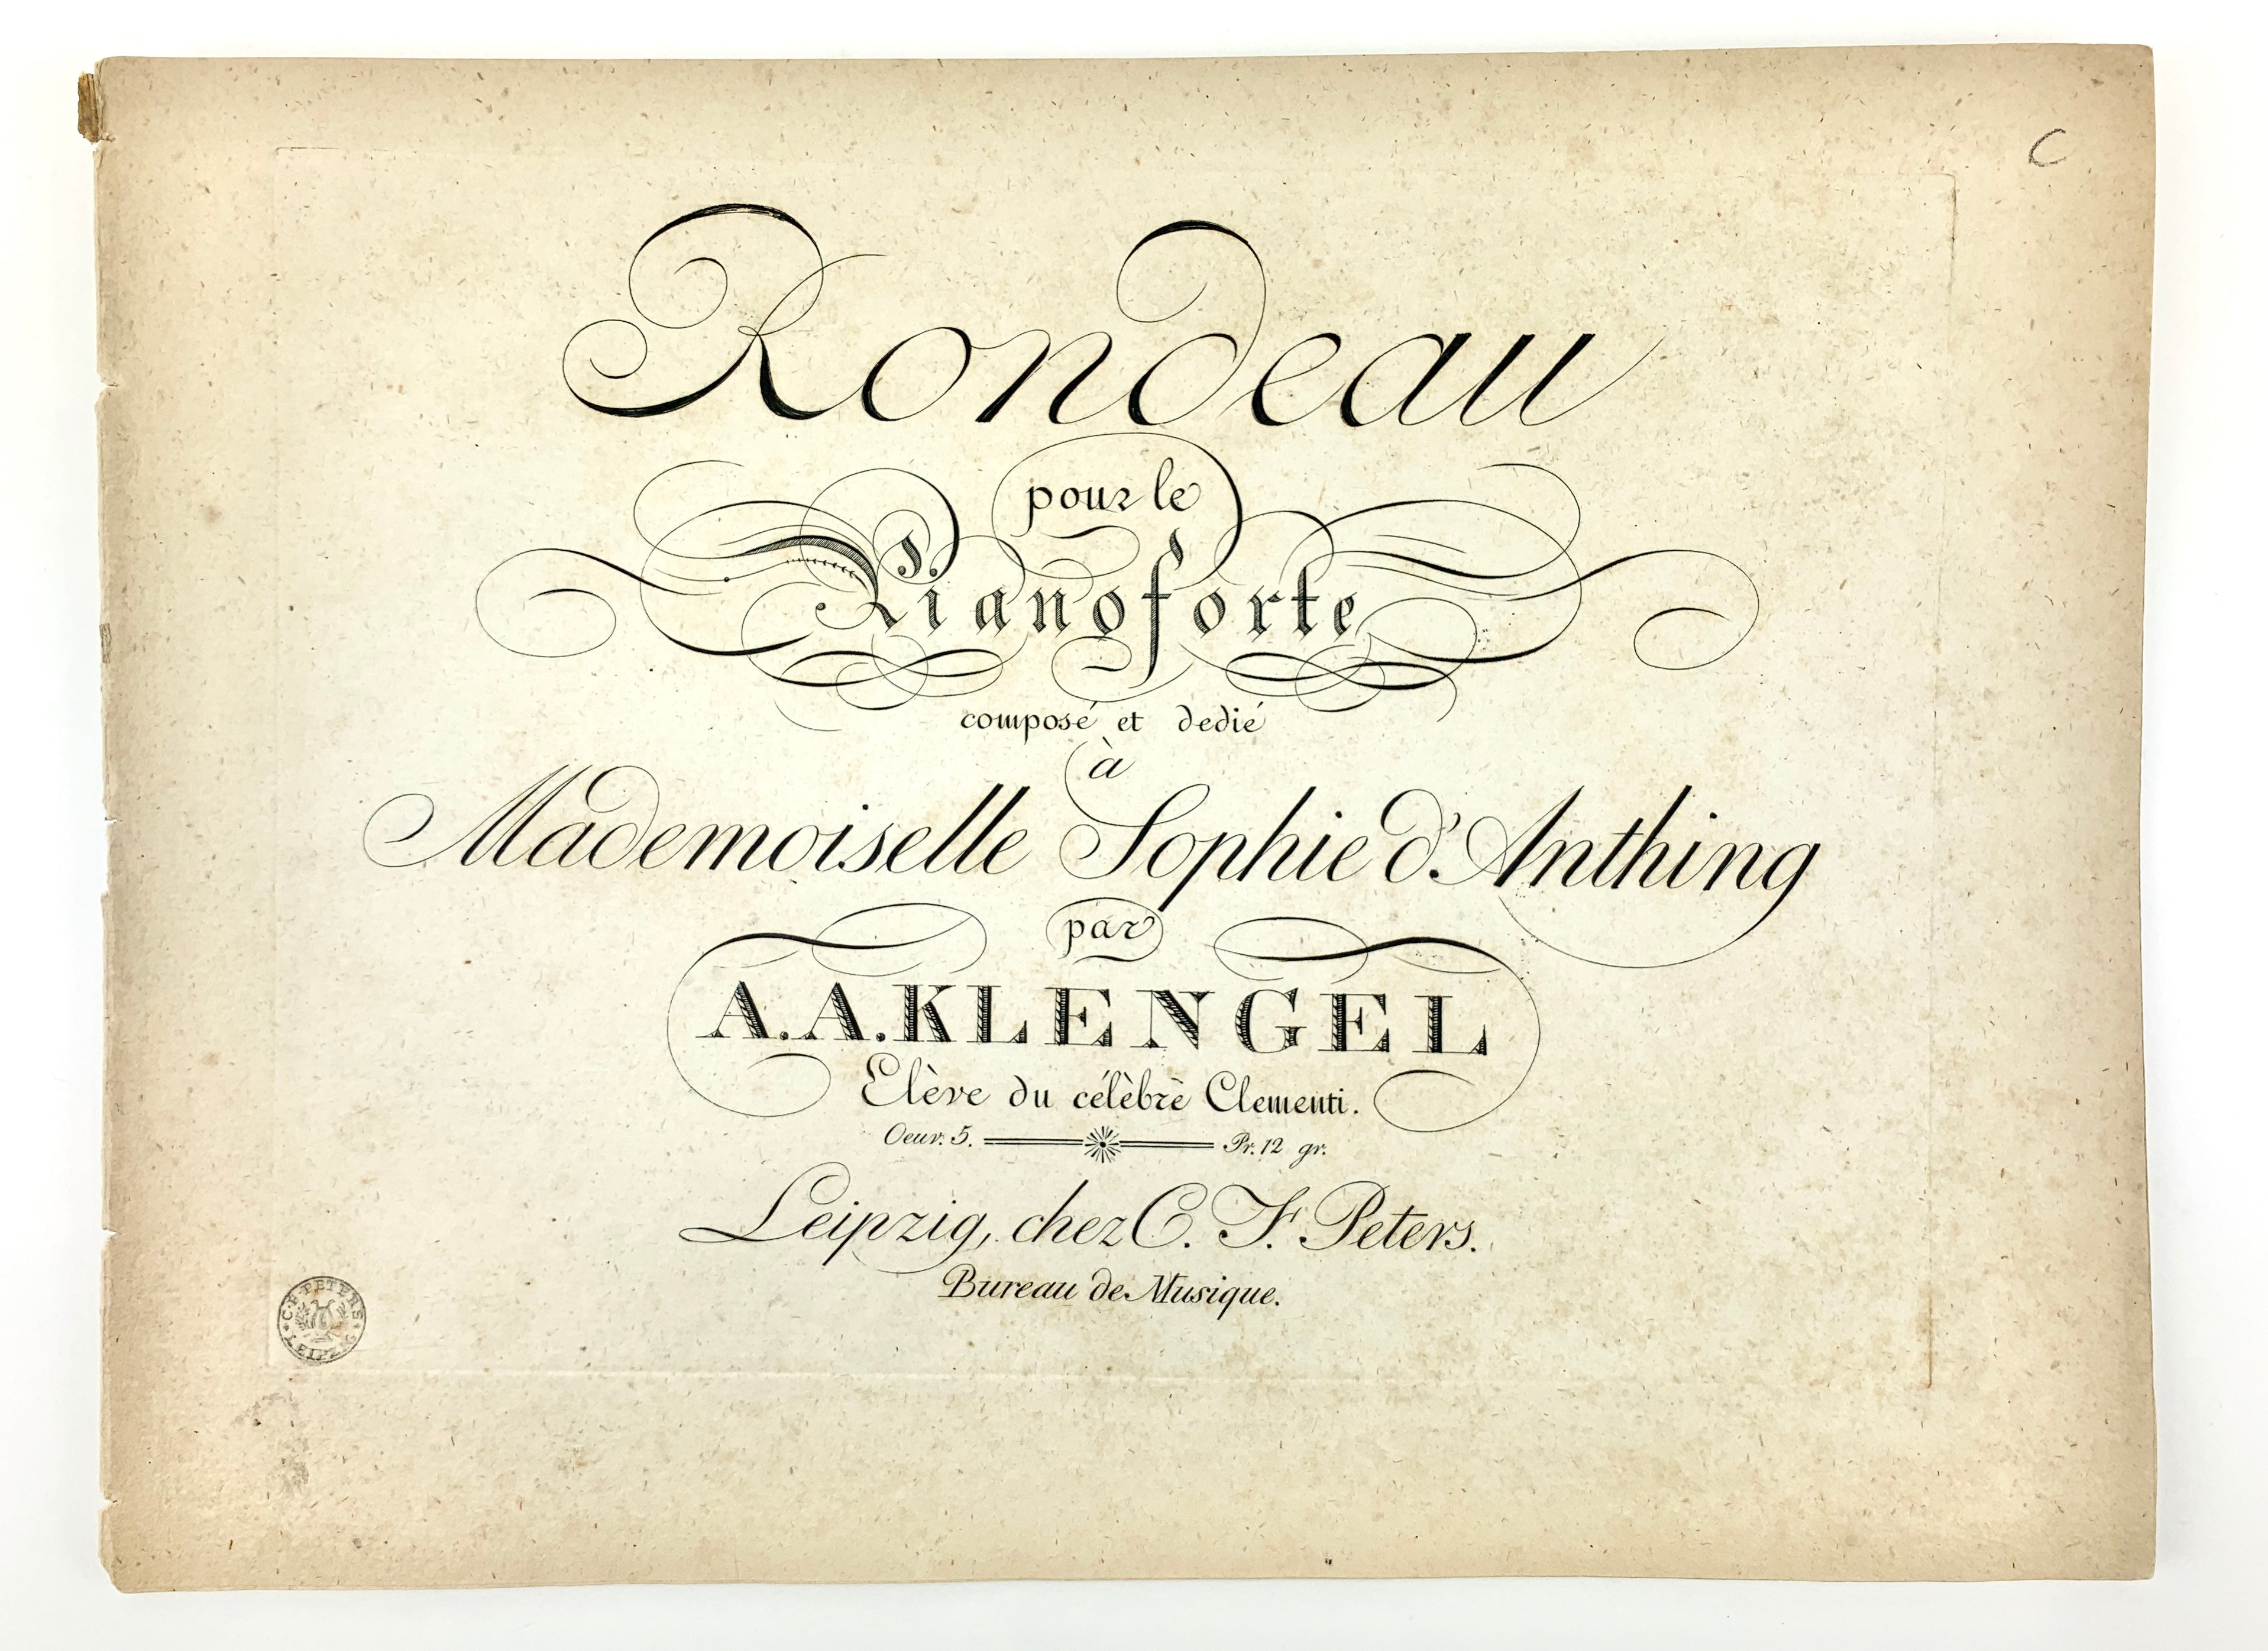 C
Rondeau
pour le
Pianoforte
composé et dedié
à
Mademoiselle Sophie d'Anthing
par
A. A. KLENGEL
Elève du célèbrè Clementi.
Oeuv. 5. Pr. 12 gr.
Leipzig, chez C. F. Peters.
Bureau de Musique.
C. F. PETERS
LEIPZIG